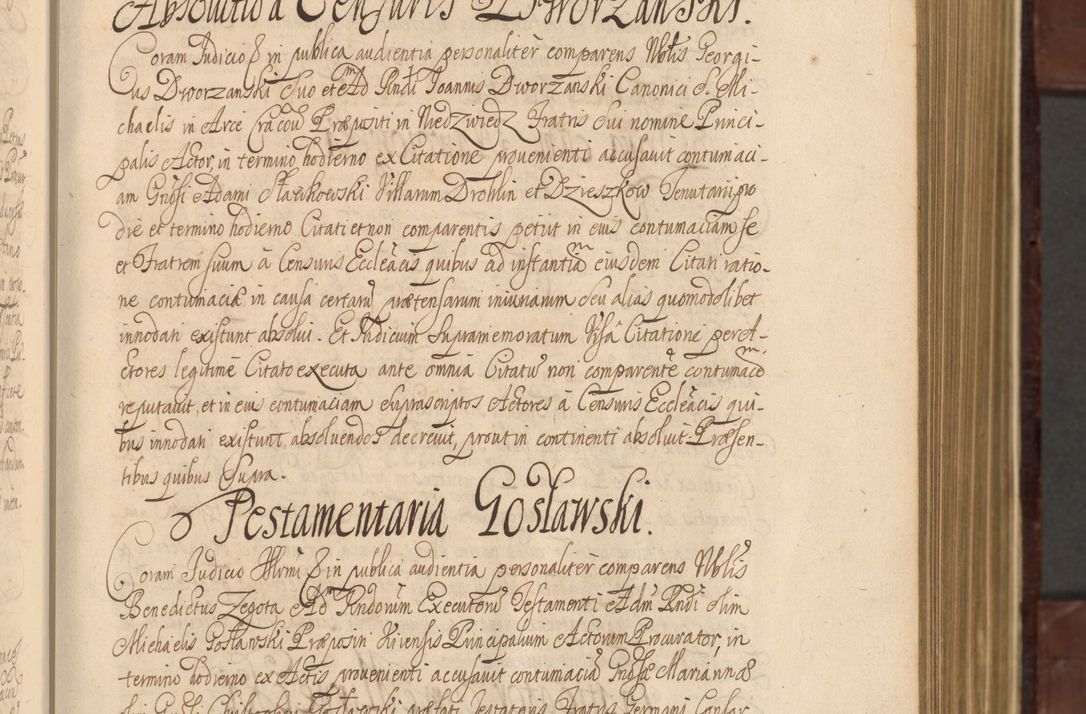 Absolutio a Censuris Dworzanski.
Coram Judicio & in publica audientia personaliter comparens Nblis Georgi-
us Dworzanski Suo et Adm Rndi Joannis Dworzanski Canonici S. Mi-
chaelis in Arce Cracou Præpositi in Niedzwiedz Fratris Sui nomine Princi-
palis Actor, in termino hodierno ex Citatione prouenienti accusauit contumaci-
am Gnosi Adami Sławkowski Villarum Droblin et Dzieszkow Tenutarii pro
die et termino hodierno Citati et non comparentis petiit in eius contumaciam se
et Fratrem suum à Censuris Eccleacis quibus ad instantiam eiusdem Citati ratio-
ne contumaciæ in causa certarũ prætensarum iniuriarum seu alias quomodolibet
innodati existunt absolui. Et Judicium supramemoratum Visâ Citatione per A-
ctores legitimè Citato executa ante omnia Citatũ non comparentẽ contumacem
reputauit, et in eius contumaciam suprascriptos Actores à Censuris Eccleacis qui-
bus innodati existunt absoluendos decreuit, prout in continenti absoluit. Præsen-
tibus quibus Supra.
Testamentaria Gosławski.
Coram Judicio Illrmi & in publica audientia personaliter comparens Nblis
Benedictus Zegota Adm Rndorum Executorũ Testamenti Adm Rndi olim
Michaelis Gosławski Præpositi Principalium Actorum Procurator, in
termino hodierno ex Actis prouenienti accusauit contumaciã Gnosæ Mariannæ
Gosławski præfati Testatoris Fratris Germani